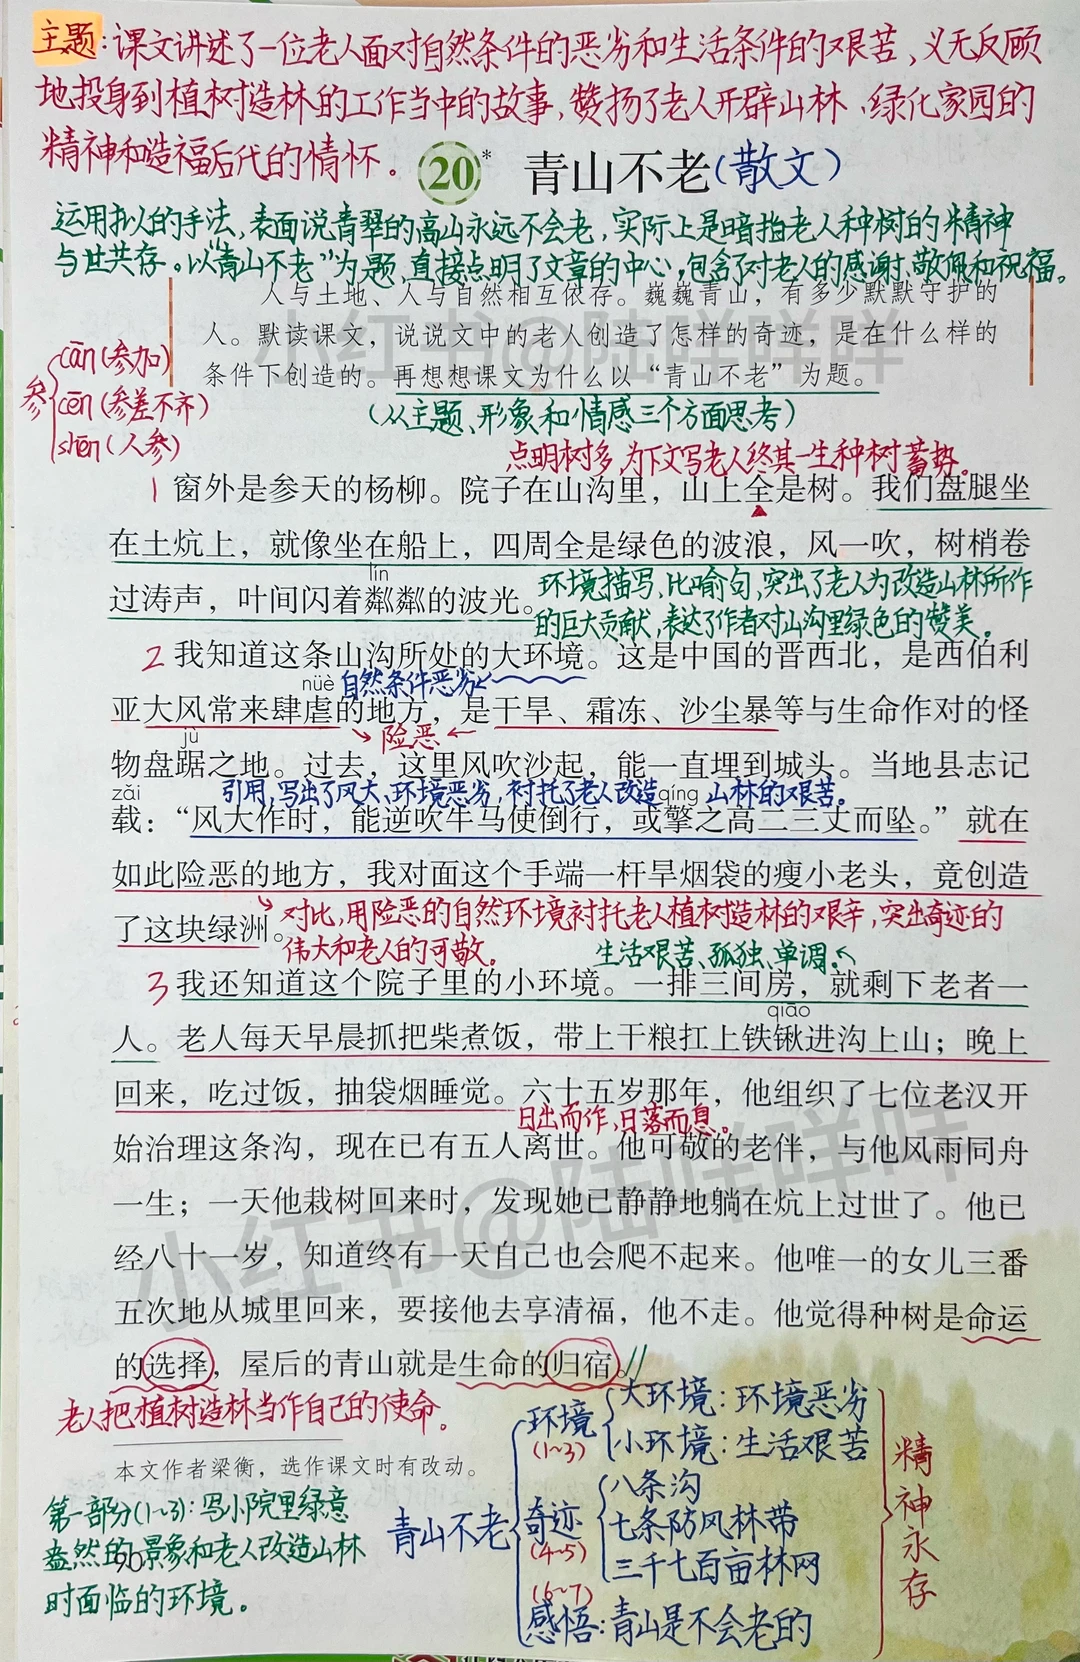 主题:课文讲述了一位老人面对自然条件的恶劣和生活条件的艰苦、义无反顾
地投身到植树造林的工作当中的故事,赞扬了老人开辟山林、绿化家园的
精神和造福后代的情怀。
20* 青山不老(散文)
运用拟人的手法,表面说青翠的高山永远不会老,实际上是暗指老人种树的精神
与世共存。以“青山不老”为题,直接点明了文章的中心,包含了对老人的感谢、敬佩和祝福。
人与土地、人与自然相互依存。巍巍青山,有多少默默守护的
人。默读课文,说说文中的老人创造了怎样的奇迹,是在什么样的
条件下创造的。再想想课文为什么以“青山不老”为题。
参
cān(参加)
cēn(参差不齐)
shēn(人参)
(从主题、形象和情感三个方面思考)
点明树多,为下文写老人终其一生种树蓄势。
1 窗外是参天的杨柳。院子在山沟里,山上全是树。我们盘腿坐
在土炕上,就像坐在船上,四周全是绿色的波浪,风一吹,树梢卷
lín
过涛声,叶间闪着粼粼的波光。
环境描写,比喻句,突出了老人为改造山林所作
的巨大贡献,表达了作者对山沟里绿色的赞美。
2 我知道这条山沟所处的大环境。这是中国的晋西北,是西伯利
nüè 自然条件恶劣
亚大风常来肆虐的地方,是干旱、霜冻、沙尘暴等与生命作对的怪
jù 险恶
物盘踞之地。过去,这里风吹沙起,能一直埋到城头。当地县志记
zǎi 引用,写出了风大、环境恶劣,衬托了老人改造 qíng 山林的艰苦。
载:“风大作时,能逆吹牛马使倒行,或擎之高二三丈而坠。”就在
如此险恶的地方,我对面这个手端一杆旱烟袋的瘦小老头,竟创造
了这块绿洲。
对比,用险恶的自然环境衬托老人植树造林的艰辛,突出奇迹的
伟大和老人的可敬。
生活艰苦、孤独、单调。
3 我还知道这个院子里的小环境。一排三间房,就剩下老者一
qiāo
人。老人每天早晨抓把柴煮饭,带上干粮扛上铁锹进沟上山;晚上
回来,吃过饭,抽袋烟睡觉。六十五岁那年,他组织了七位老汉开
日出而作,日落而息。
始治理这条沟,现在已有五人离世。他可敬的老伴,与他风雨同舟
一生;一天他栽树回来时,发现她已静静地躺在炕上过世了。他已
经八十一岁,知道终有一天自己也会爬不起来。他唯一的女儿三番
五次地从城里回来,要接他去享清福,他不走。他觉得种树是命运
的选择,屋后的青山就是生命的归宿。//
老人把植树造林当作自己的使命。
本文作者梁衡,选作课文时有改动。
第一部分(1~3):写小院里绿意
盎然的景象和老人改造山林
时面临的环境。
90
青山不老
环境
(1~3)
大环境:环境恶劣
小环境:生活艰苦
奇迹
(4~5)
八条沟
七条防风林带
三千七百亩林网
(6~7)
感悟:青山是不会老的
精神永存
小红书@陆咩咩咩
小红书@陆咩咩咩